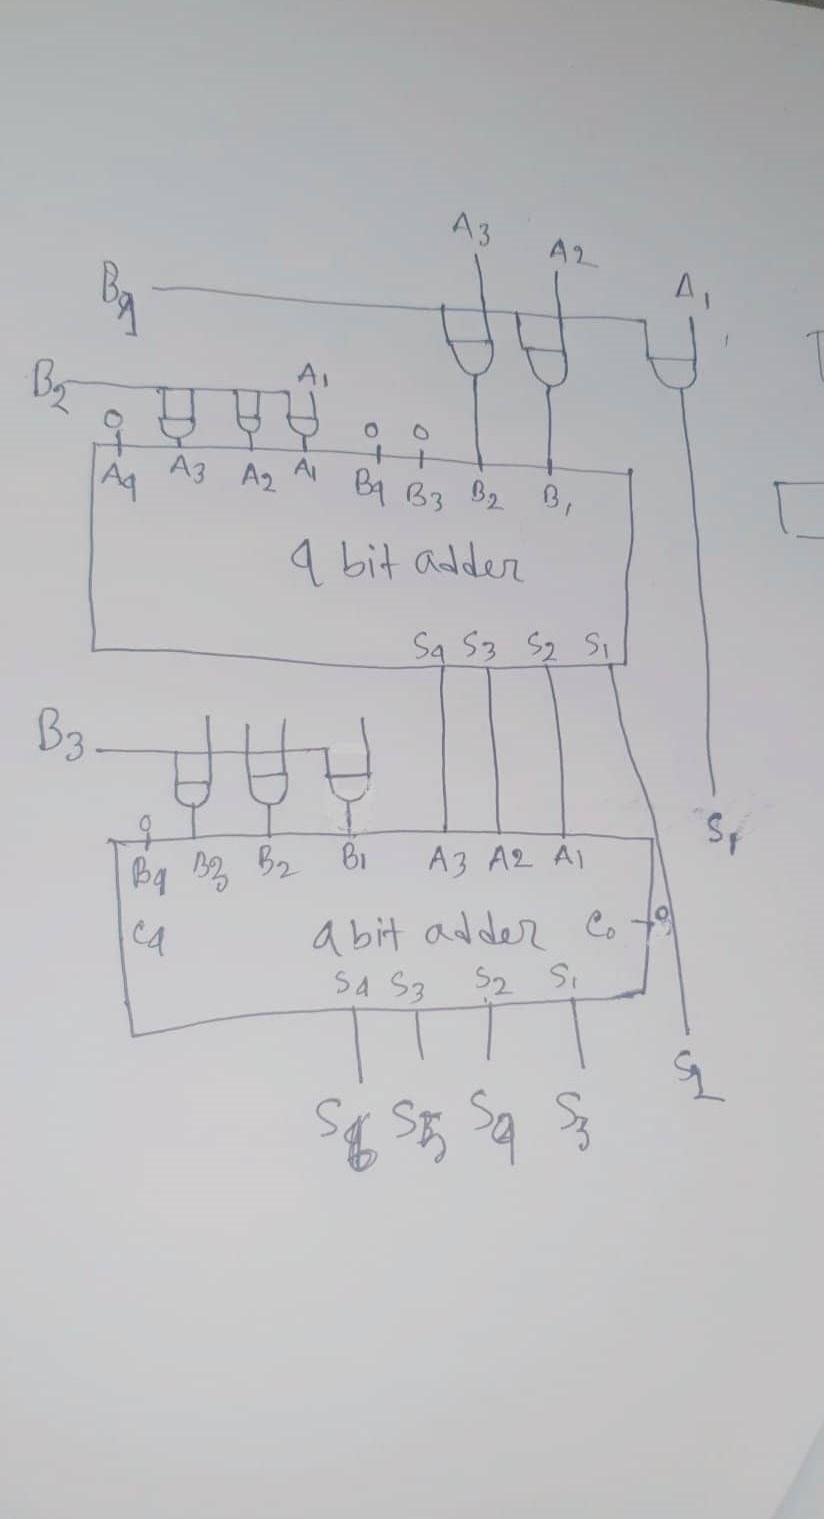 A3
A2
A1
B1
B2
A1
0
0 0
A4 A3 A2 A1 B4 B3 B2 B1
4 bit adder
S4 S3 S2 S1
B3
S1
0
B4 B3 B2 B1 A3 A2 A1
C4 4 bit adder C0 0
S4 S3 S2 S1
S2
S6 S5 S4 S3